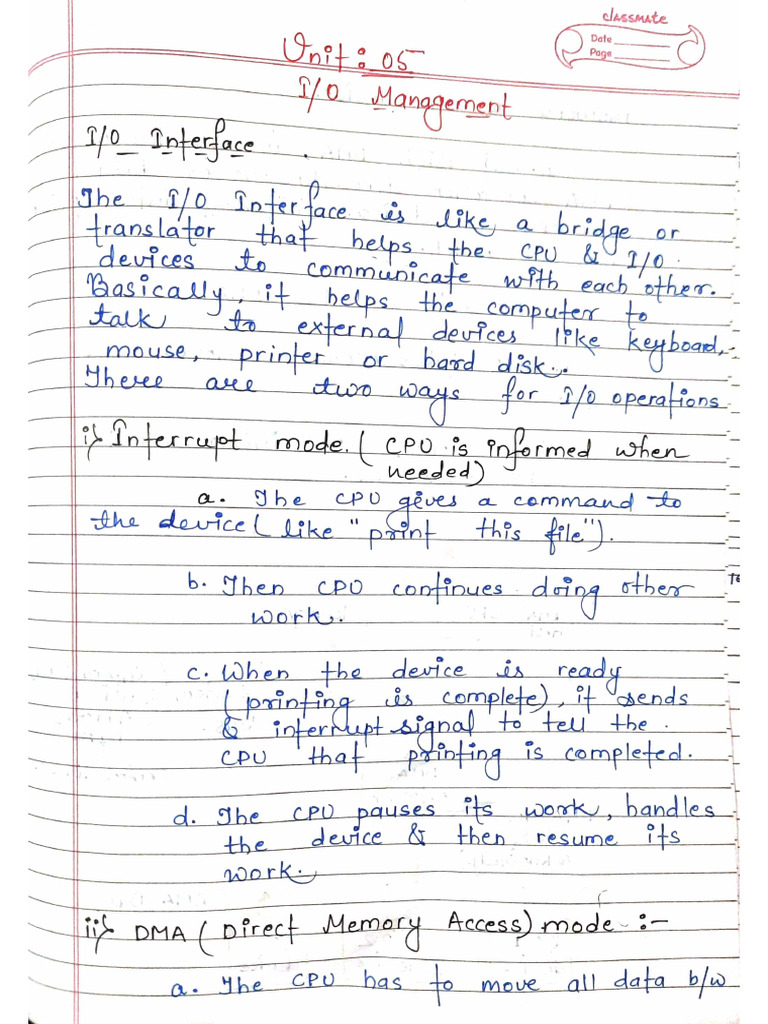 classmate
Date
Page
Unit: 05
I/O Management
I/O Interface
The I/O Interface is like a bridge or
translator that helps the CPU & I/O
devices to communicate with each other.
Basically, it helps the computer to
talk to external devices like keyboard,
mouse, printer or hard disk..
There are two ways for I/O operations
i) Interrupt mode. (CPU is informed when
needed)
a. The CPU gives a command to
the device (like "print this file").
b. Then CPU continues doing other
work.
c. When the device is ready
(printing is complete), it sends
& interrupt signal to tell the
CPU that printing is completed.
d. The CPU pauses its work, handles
the device & then resume its
work.
ii) DMA (Direct Memory Access) mode :-
a. The CPU has to move all data b/w